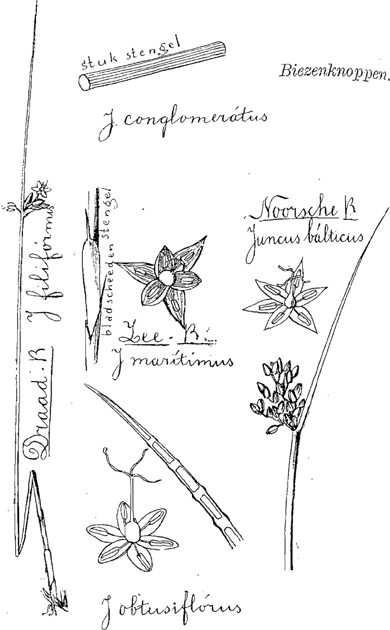 stuk stengel
Biezenknoppen.
J. conglomerátus
Noorsche B
Juncus bálticus
Draad-B
J filifórmis
bladscheede en stengel
Zee-B.
J marítimus
J obtusiflórus